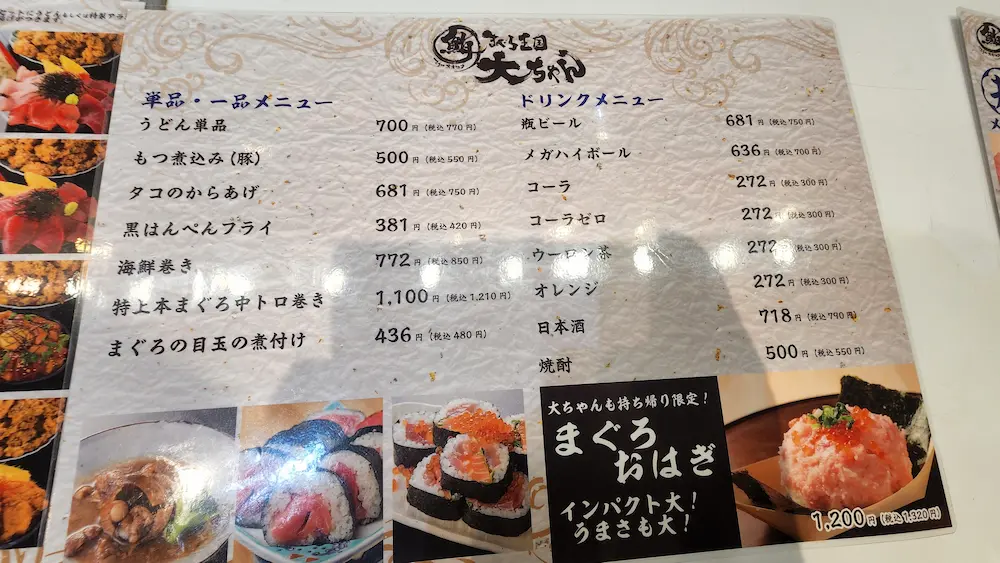 鮪
まぐろ王国
大ちゃん
単品・一品メニュー
うどん単品 700円(税込770円)
もつ煮込み(豚) 500円(税込550円)
タコのからあげ 681円(税込750円)
黒はんぺんフライ 381円(税込420円)
海鮮巻き 772円(税込850円)
特上本まぐろ中トロ巻き 1,100円(税込1,210円)
まぐろの目玉の煮付け 436円(税込480円)
ドリンクメニュー
瓶ビール 681円(税込750円)
メガハイボール 636円(税込700円)
コーラ 272円(税込300円)
コーラゼロ 272円(税込300円)
ウーロン茶 272円(税込300円)
オレンジ 272円(税込300円)
日本酒 718円(税込790円)
焼酎 500円(税込550円)
大ちゃんも持ち帰り限定!
まぐろ
おはぎ
インパクト大!
うまさも大!
1,200円(税込1,320円)